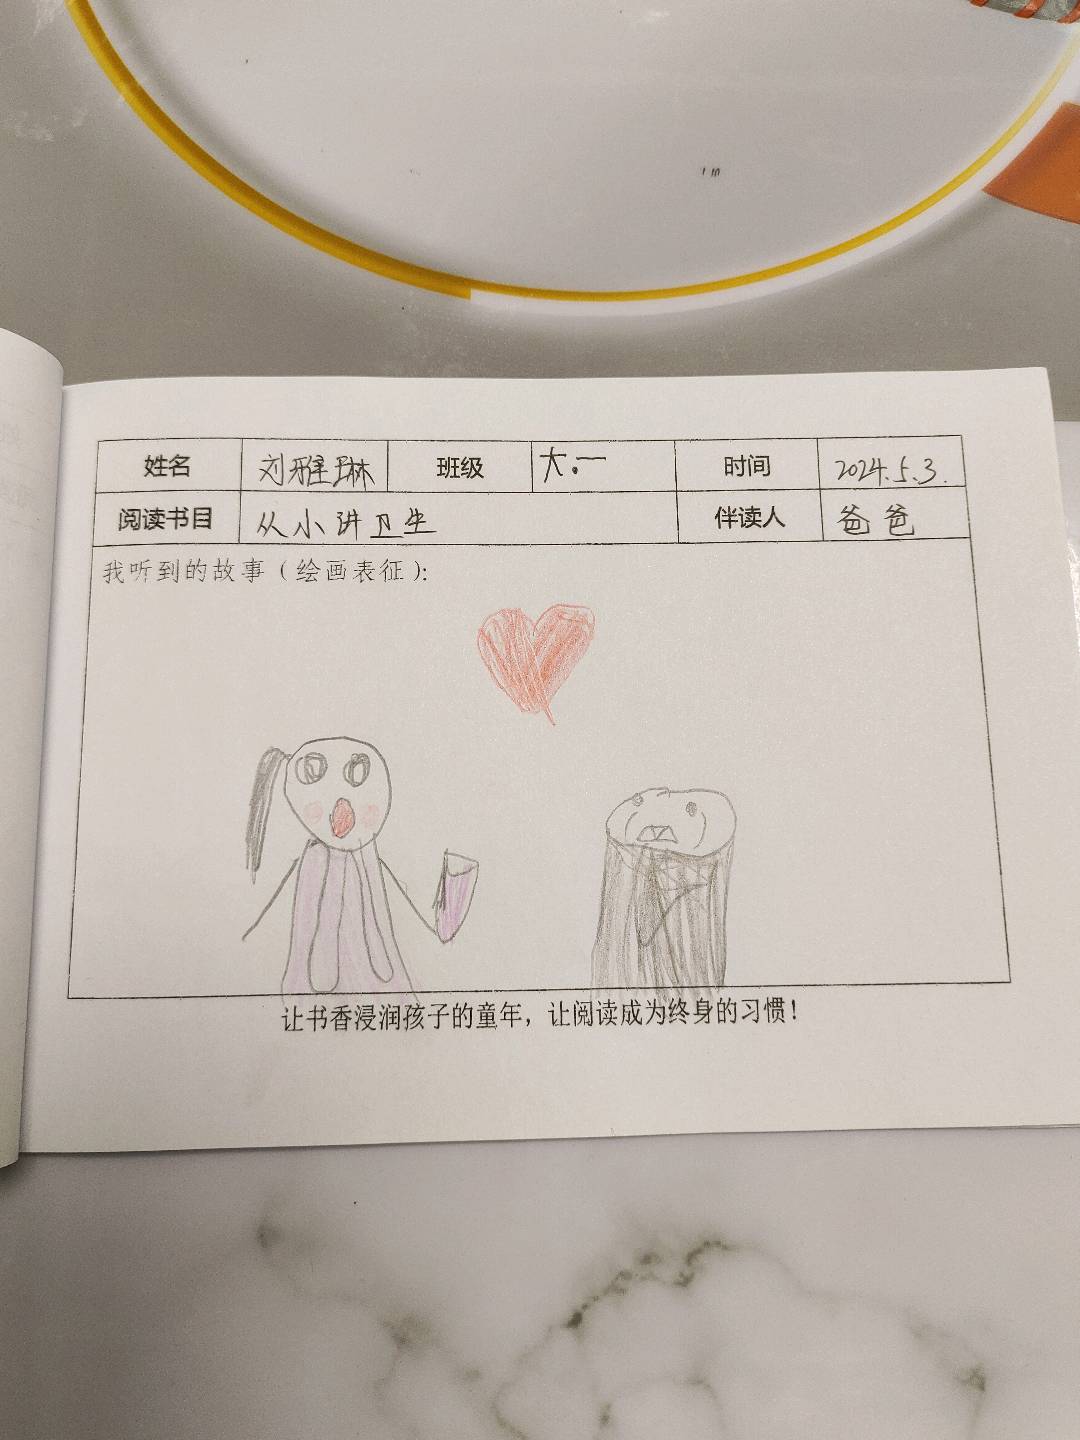 姓名 刘雅琳 班级 大.一 时间 2024.5.3.
阅读书目 从小讲卫生 伴读人 爸爸
我听到的故事（绘画表征）：
让书香浸润孩子的童年，让阅读成为终身的习惯！